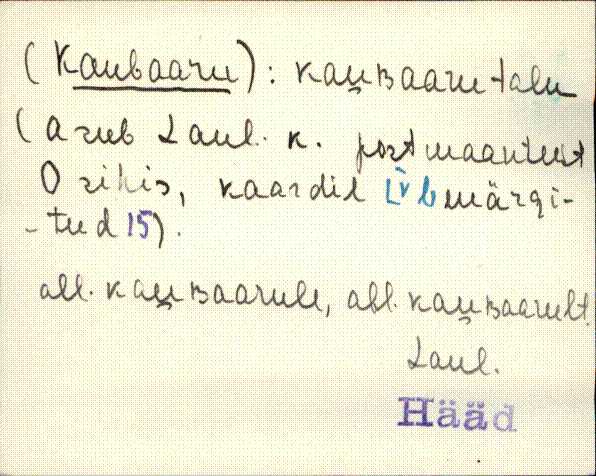 (Kaubaaru): kau̯ʙaaru talu
(asub Laul. k. postmaanteest
O sihis, kaardil IVb märgi-
-tud 15).
all. kau̯ʙaarule, abl. kau̯ʙaarult.
Laul.
Hääd